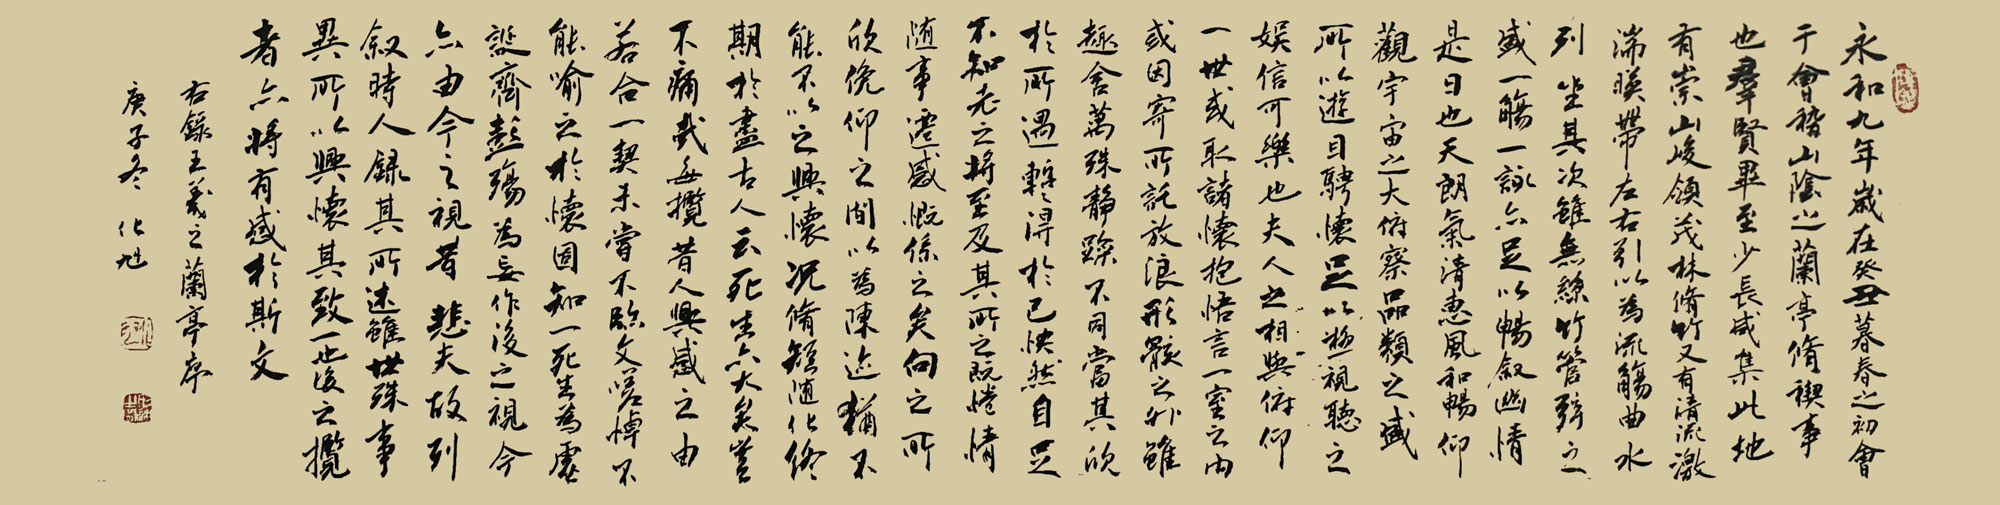 永和九年歲在癸丑暮春之初會
于會稽山陰之蘭亭脩禊事
也羣賢畢至少長咸集此地
有崇山峻領茂林脩竹又有清流激
湍暎帶左右引以為流觴曲水
列坐其次雖無絲竹管弦之
盛一觴一詠亦足以暢叙幽情
是日也天朗氣清惠風和暢仰
觀宇宙之大俯察品類之盛
所以遊目騁懷足以極視聽之
娛信可樂也夫人之相與俯仰
一世或取諸懷抱悟言一室之內
或因寄所託放浪形骸之外雖
趣舍萬殊静躁不同當其欣
於所遇輒得於己怏然自足
不知老之將至及其所之既惓情
随事遷感慨係之矣向之所
欣俛仰之間以為陳迹猶不
能不以之興懷况脩短随化終
期於盡古人云死生亦大矣豈
不痛哉每攬昔人興感之由
若合一契未嘗不臨文嗟悼不
能喻之於懷固知一死生為虛
誕齊彭殤為妄作後之視今
亦由今之視昔悲夫故列
叙時人録其所述雖世殊事
異所以興懷其致一也後之攬
者亦將有感於斯文
右錄王羲之蘭亭序
庚子冬 化旭